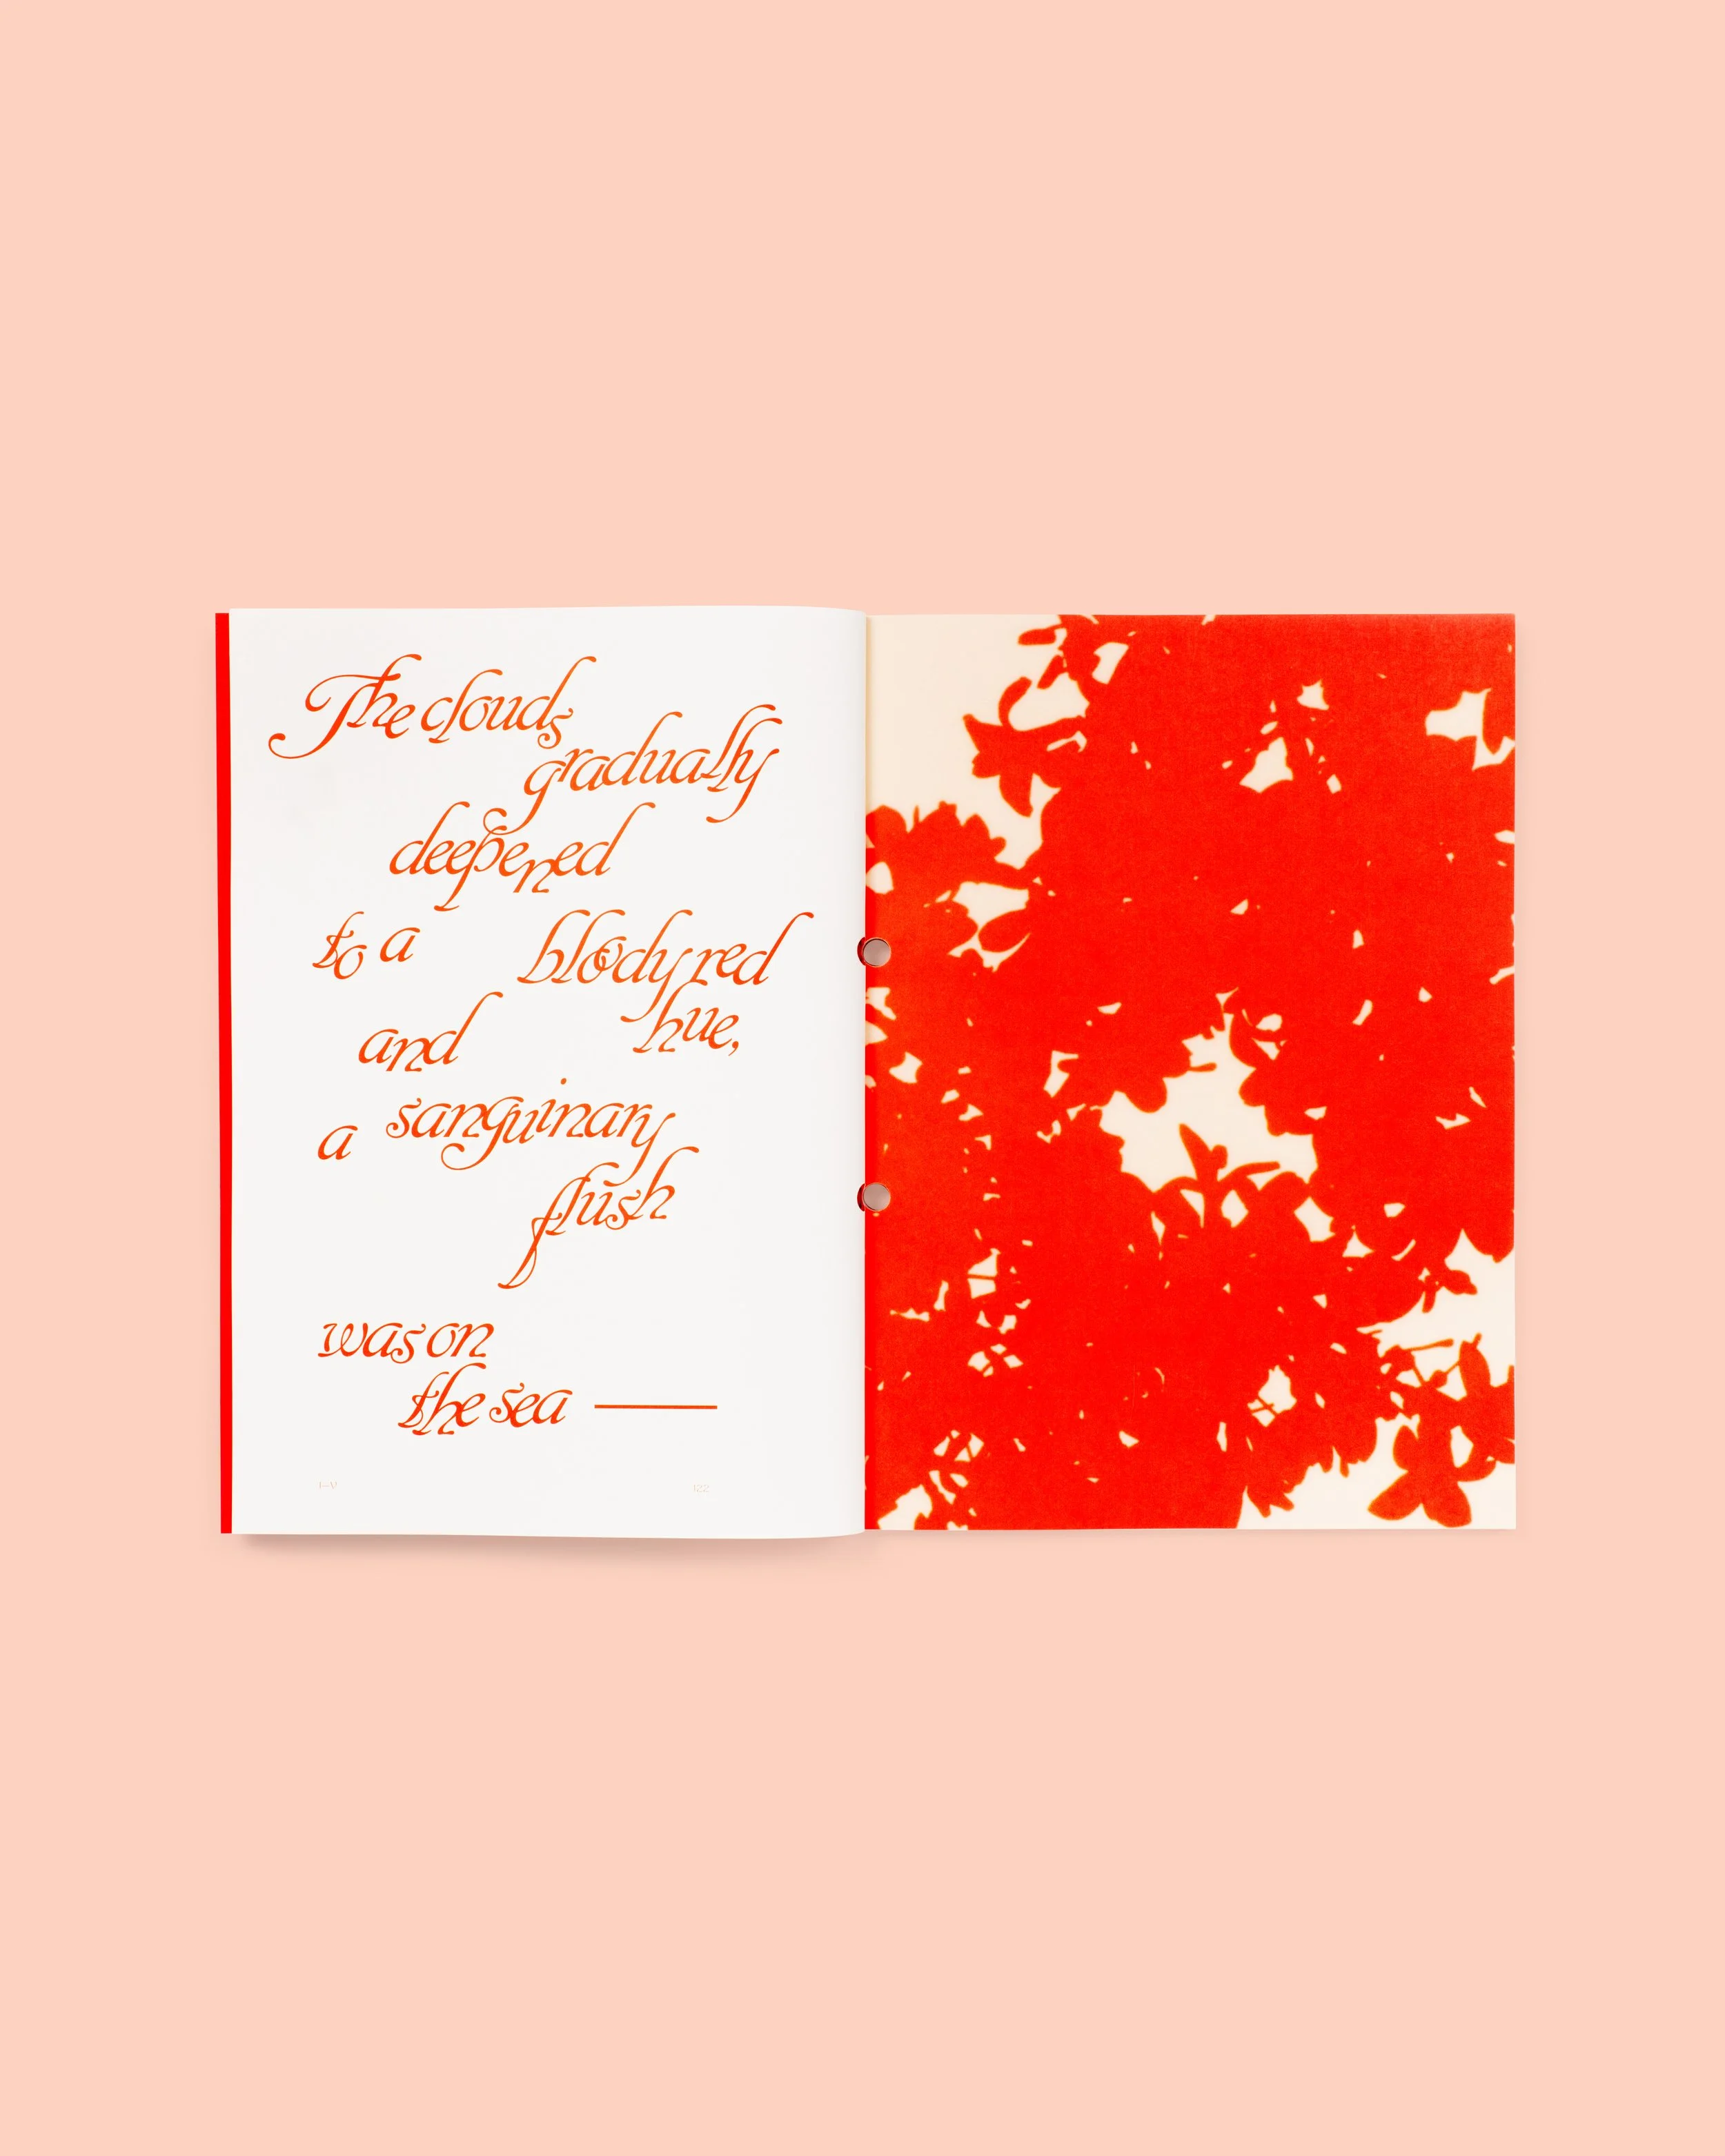 The clouds
gradually
deepened
to a bloody red
hue,
and
a sanguinary
flush
was on
the sea ———
122